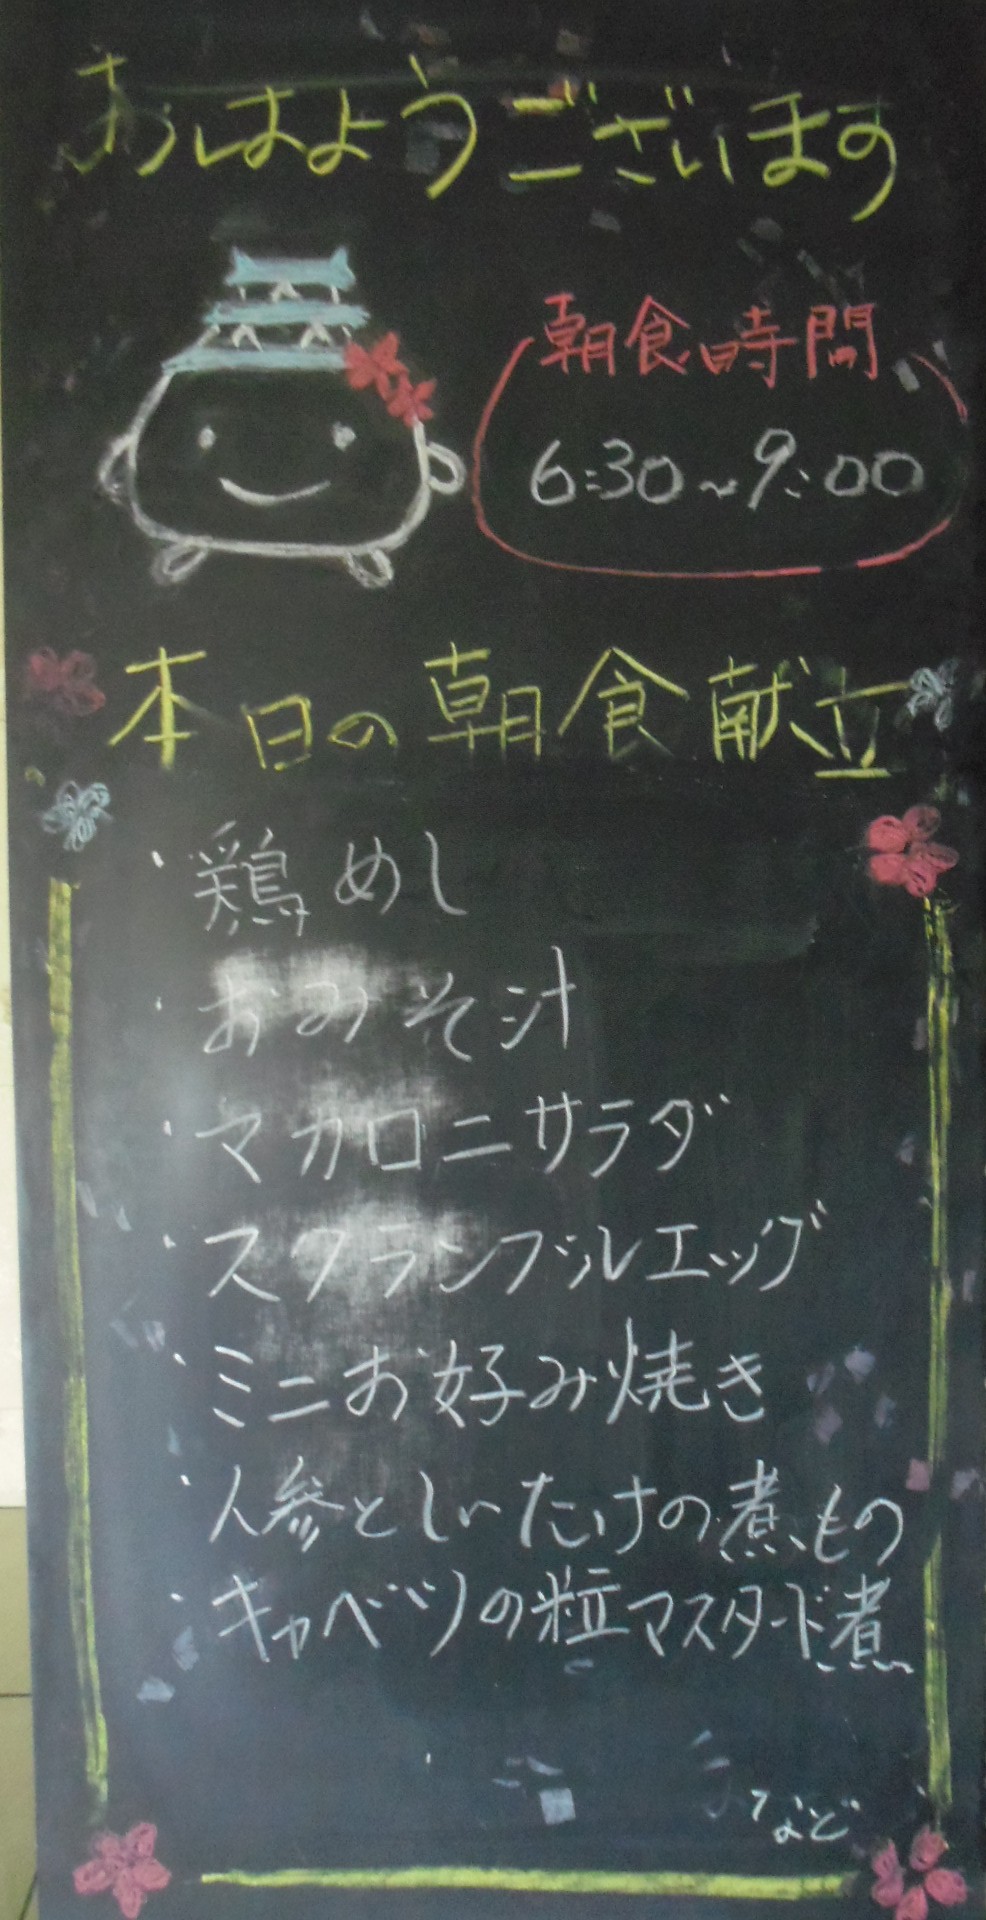 おはようございます
朝食時間
6:30~9:00
本日の朝食献立
・鶏めし
・おみそ汁
・マカロニサラダ
・スクランブルエッグ
・ミニお好み焼き
・人参としいたけの煮もの
・キャベツの粒マスタード煮
など